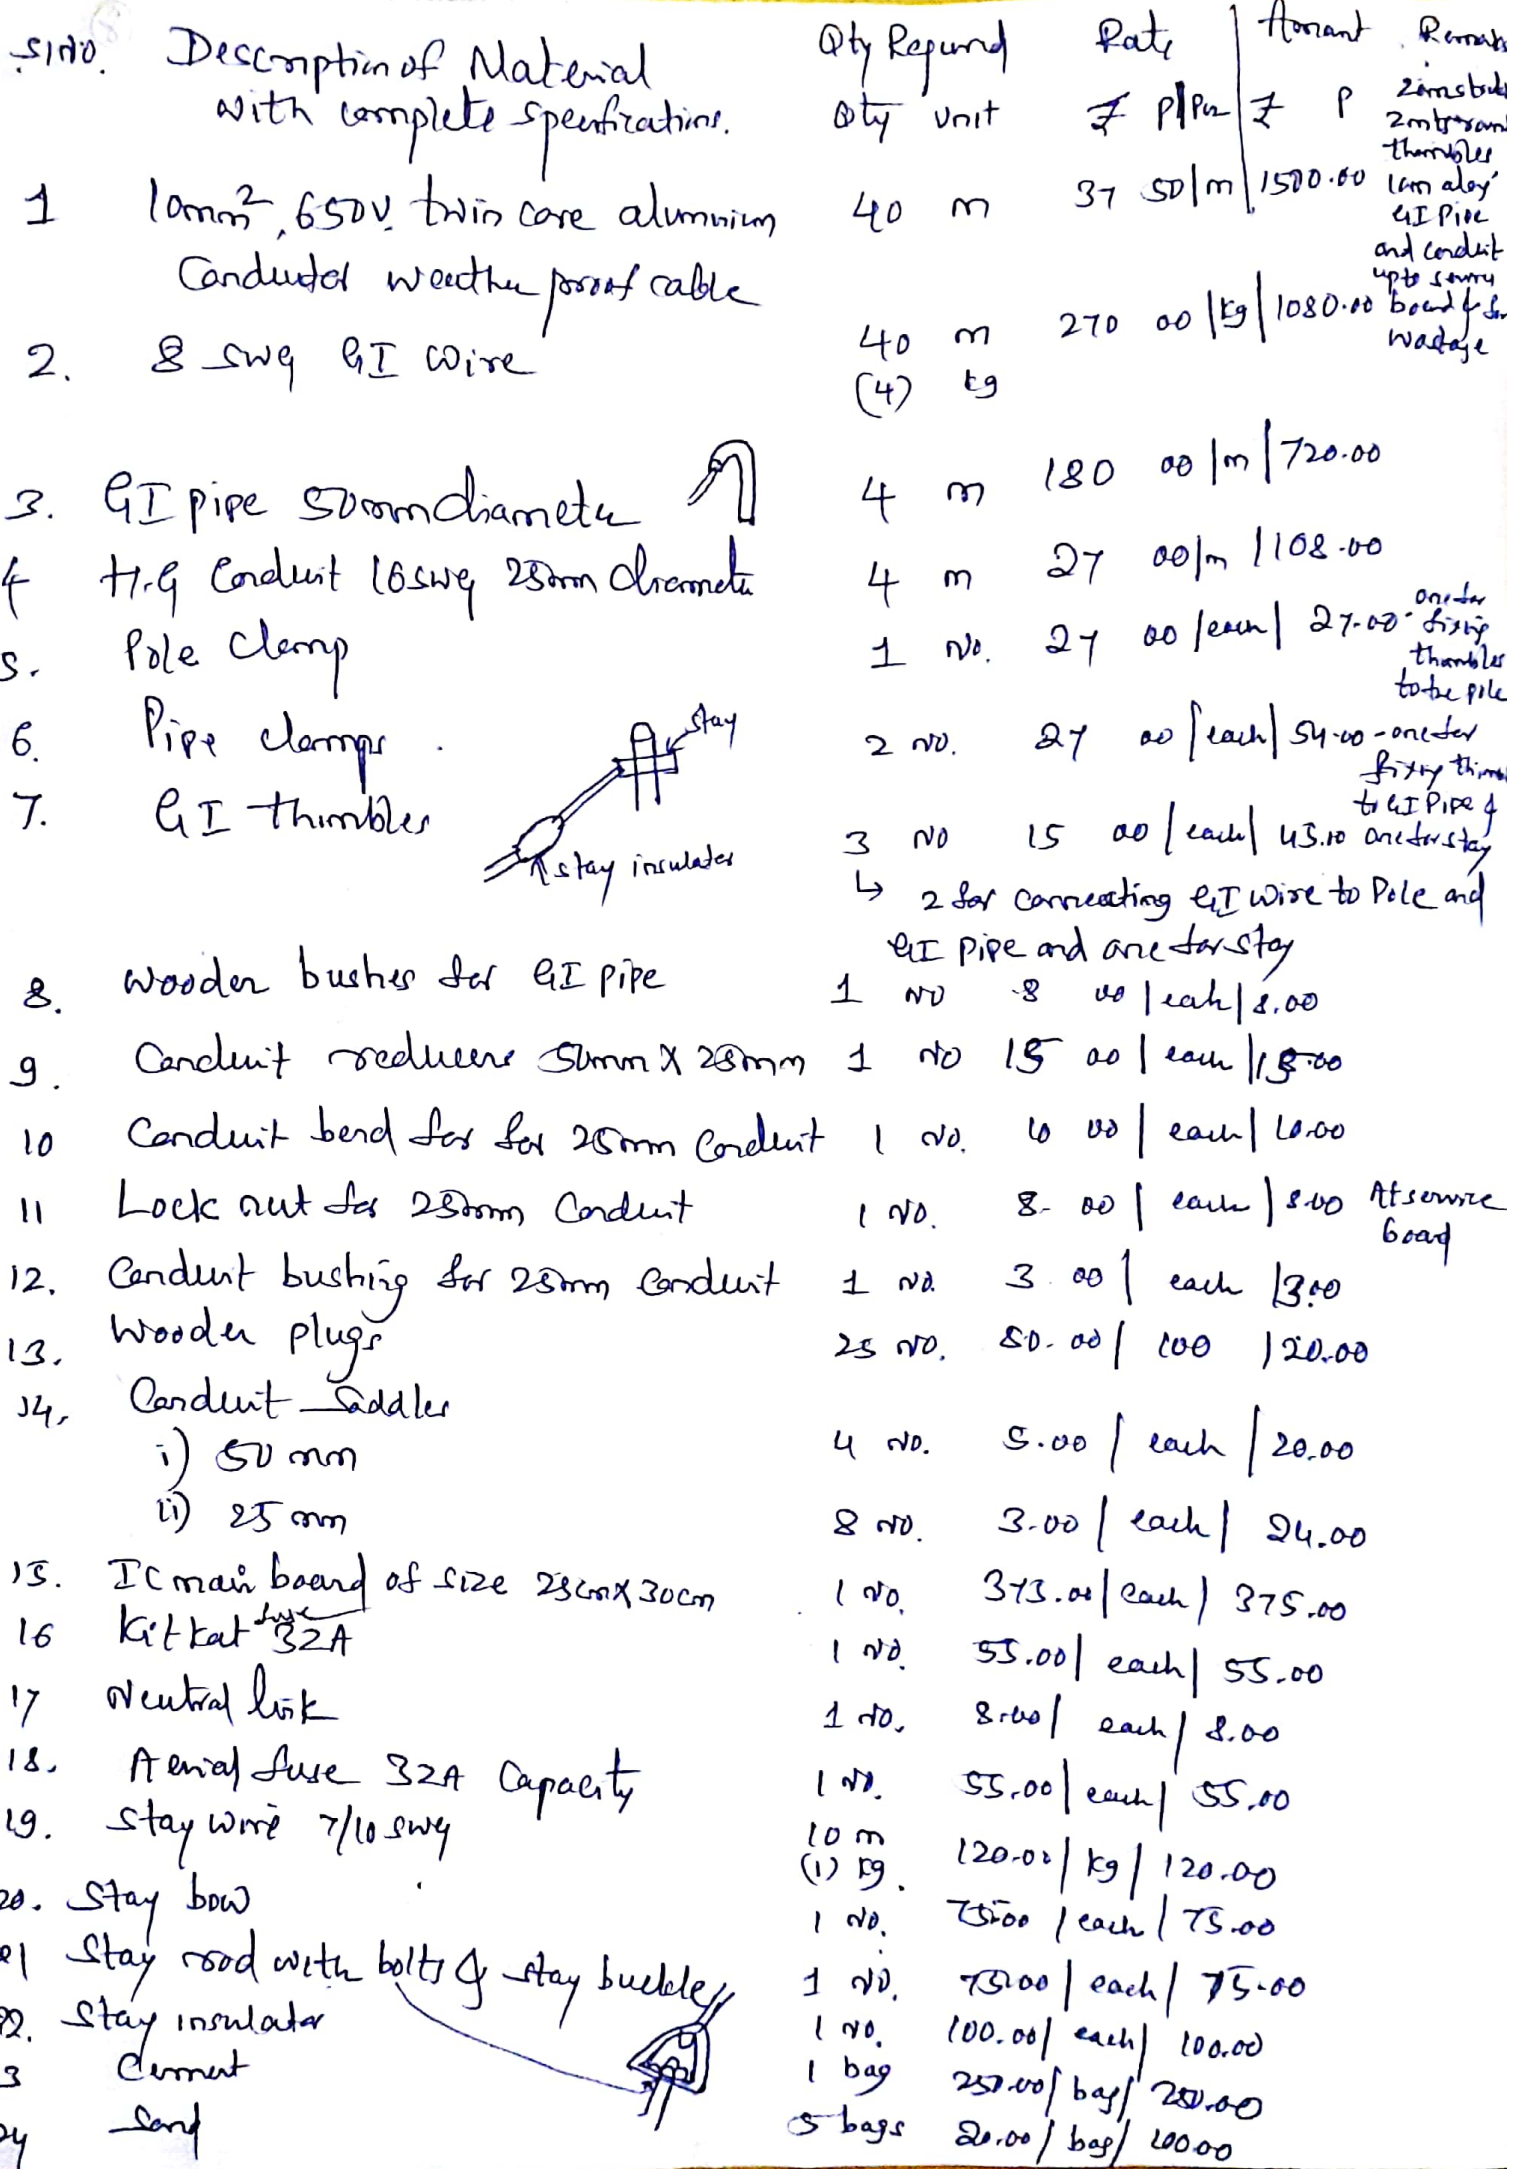 Sl No. Description of Material Qty Requird Rate Amount Remarks
with complete specifications. Qty Unit ₹ P/Per ₹ P
1 10mm², 650V, twin core aluminium 40 m 37 50/m/1500.00
Conductor weather proof cable
2. 8 swg GI wire 40 m 270 00/kg/1080.00
(4) kg
thimbles
GI Pipe
and conduit
upto
board & for
wastage
3. GI pipe 50mm diameter 4 m 180 00/m/720.00
4 H.G Conduit 16swg 25mm diameter 4 m 27 00/m/108.00
5. Pole Clamp 1 No. 27 00/each/27.00 - one for
fixing
thimbles
to the pole
6. Pipe clamps. 2 No. 27 00/each/54.00 - one for
stay
to GI Pipe &
7. GI thimbles 3 No 15 00/each/45.00 one for stay
stay insulator
↳ 2 for connecting GI wire to Pole and
GI pipe and one for stay
8. Wooden bushes for GI pipe 1 No 8 00/each/8.00
9. Conduit reducers 50mm X 25mm 1 No 15 00/each/15.00
10 Conduit bend for for 25mm Conduit 1 No. 10 00/each/10.00
11 Lock nut for 25mm Conduit 1 No. 8-00/each/8.00 At service
board
12. Conduit bushing for 25mm Conduit 1 No. 3.00/each/3.00
13. Wooden plugs 25 No. 80.00/100/20.00
14. Conduit Saddles
i) 50 mm 4 No. 5.00/each/20.00
ii) 25 mm 8 No. 3.00/each/24.00
15. IC main board of size 25cm X 30cm 1 No. 373.00/each/375.00
16 Kitkat fuse 32A 1 No. 55.00/each/55.00
17 Neutral link 1 No. 8.00/each/8.00
18. Aerial fuse 32A Capacity 1 No. 55.00/each/55.00
19. Stay wire 7/10 swg 10 m
(1) kg. 120.00/kg/120.00
20. Stay bow 1 No. 75.00/each/75.00
21 Stay rod with bolts & stay buckle 1 No. 75.00/each/75.00
22. Stay insulator 1 No. 100.00/each/100.00
3 Cement 1 bag 250.00/bag/250.00
24 Sand 5 bags 20.00/bag/100.00